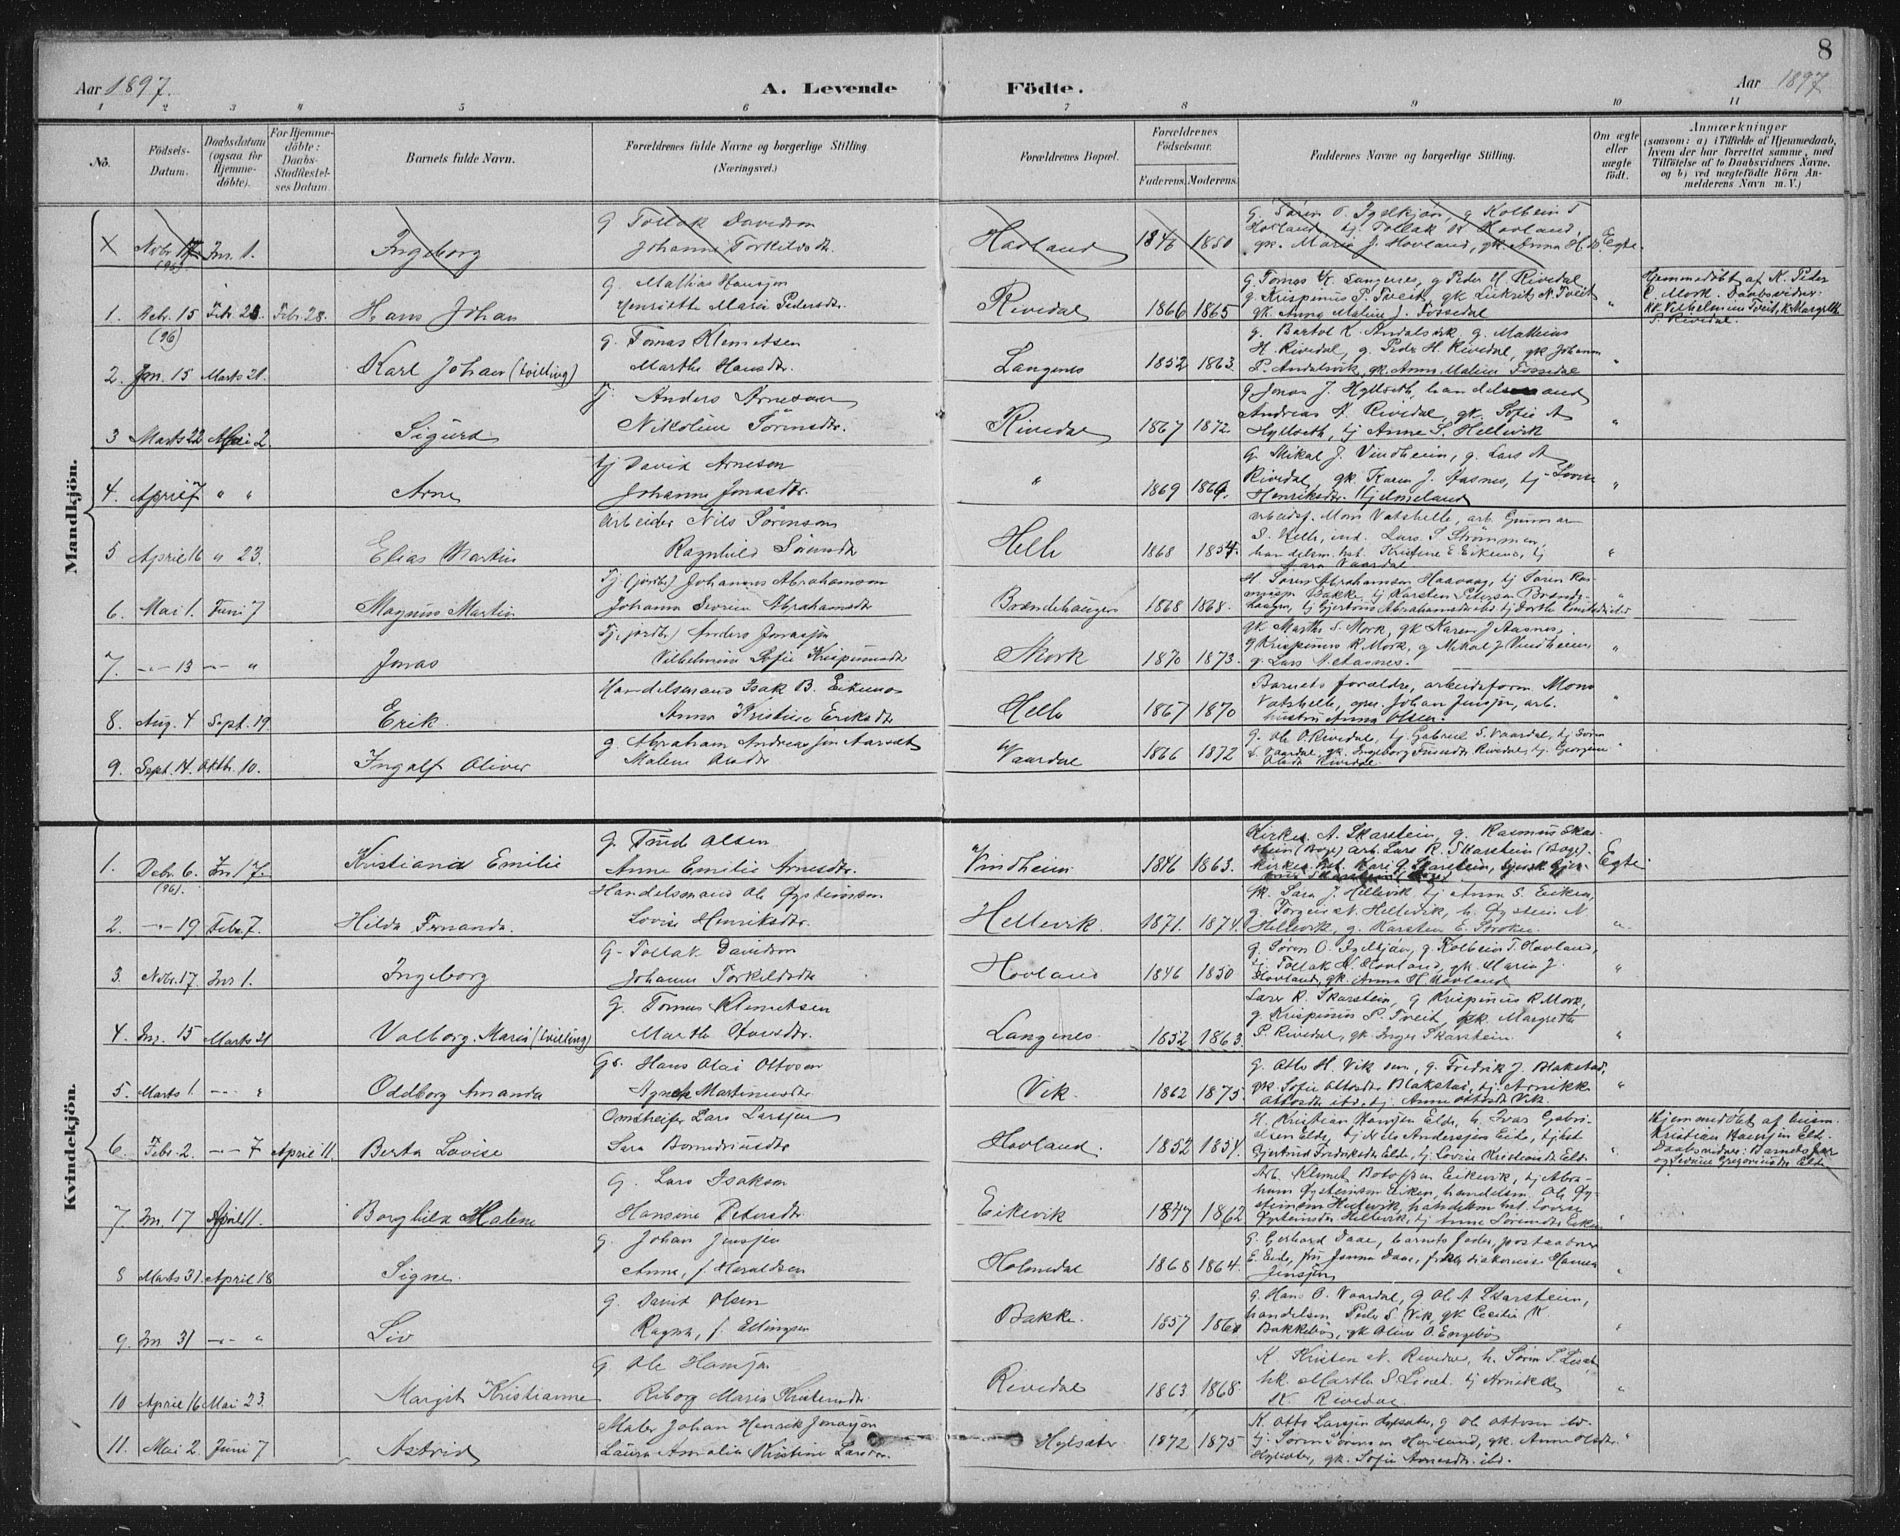 8
Aar 1897.
A. Levende Födte.
Aar 1897
1 2 3 4 5 6 7 8 9 10 11
Nö.
Födsels-Datum.
Daabsdatum (ogsaa for Hjemme-döbte).
For Hjemme-döbte: Daabs-Stadfæstel-ses Datum.
Barnets fulde Navn.
Forældrenes fulde Navne og borgerlige Stilling (Næringsvei.)
Forældrenes Bopæl.
Forældrenes Födselsaar.
Faderens. Moderens.
Faddernes Navne og borgerlige Stilling.
Om ægte eller uægte födt.
Anmærkninger
(saasom: a) i Tilfælde af Hjemmedaab, hvem der har forrettet samme, med Tilföielse af to Daabsvidners Navne, og b) ved uægtefödte Börn An-melderens Navn m. V.)
Mandkjön.
X Novbr. 17 (96). Jnr. 1. Ingeborg
G Tollak Davidson
Johanne Torkildsdtr
Hovland 1846 1850
G. Søren O. Igelkjøn, g Kolbein T
Hovland, tj Tollak H Hovland,
gk. Maria J. Hovland, gk Anna H. Egte
1. Debr. 15 (96) Febr. 28. Febr. 28. Hans Johan
G. Mathias Hansjen
Henriette Marie Pedersdtr.
Rivedal 1866 1865
G. Tomas K. Langenes, g Peder H. Rivedal
g. Krispinus P. Tveit, gk Lukris N. Tveit
gk. Anna Maline J. Fossedal "
Hjemmedöbt af K. Peder
R. Mork. Daabsvidner:
2. Jan. 15 Marts 21. Karl Johan (tvilling)
G. Tomas Klemetsen
Marthe Hansdtr.
Langenes 1852 1863.
g. Bertel K. Andalsvik, g. Mathias
H. Rivedal, g. Peder H. Rivedal, gk Johanne
P. Andalsvik, gk. Anna Maline Fossedal "
3 Marts 22 Mai 2 Sigurd
Tj. Anders Arnesen
Nikoline Sörensdtr.
Rivedal 1867 1872.
g Jonas J. Hylleseth, handelsmand
Andreas A. Rivedal, gk. Sofie A
Hylleseth, tj Anne S. Hellevik "
4. April 7 " " Arne
tj David Arneson
Johanne Jonasdtr.
" 1869 1869.
G. Mikal J. Vindheim, g. Lars A
Rivedal, gk. Karen J. Aasnes, tj Lovise
Henriksdtr. Hjelmeland "
5 April 16 " 23. Elias Martin
Arbeider Nils Sörenson
Ragnhild Simensdtr
Helle 1868 1854.
arbeidsf. Mons Vatshelle, arb. Gunnar
S. Helle, ind. Lars I Strömmen,
handelsm. hst. Kristine E Eikenes, tj
Sara Vaardal "
6. Mai 1. Juni 7 Magnus Martin
Tj (jordbr) Johannes Abrahamson
Johanne Severine Abrahamsdtr
Brændehaugen 1868 1868.
H. Sören Abrahamsen Haavaag, tj Sören Ras-
mussen Bakke, tj Karsten Petersen Brænd-
haugen, tj Gjertine Abrahamsdtr ibd tj Dorthe
7. -"- 13 -"- " Jonas
Tj. (jordbr) Anders Jonasjen
Vilhelmine Sofie Krispinusdtr
Mork 1870 1873.
gk Marthe S. Mork, gk Karen J Aasnes,
g Krispinus R. Mork, g Mikal J Vindheim
g. Lars N. Aasnes. "
8. Aug. 4 Sept. 19 Erik.
Handelsmand Isak B. Eikenes
Anna Kristine Eriksdtr
Helle 1867 1870
Barnets forældre, arbeidsform. Mons
Vatshelle, opv. Johan Jensjen, arb.
hustru Anna Olsen. "
9. Sept. 14. Oktbr. 10. Ingolf Oliver
g. Abraham Andreasjen Aarseth
Malene Olsdtr
Vaardal 1866 1872
G. Ole O. Rivedal, tj. Gabriel S. Vaardal, tj Sören
S. Vaardal, gk. Ingeborg Rivedal, tj. Georgine
Olsdtr Rivedal "
Kvindekjön.
1. Debr. 6. (96). Jnr 17. Kristiana Emilie
G Trued Olsen
Anne Emilie Arnesdtr.
Vindheim 1846 1863.
Kirkes. A. Skarstein, g. Rasmus Skar-
stein (Böge) arb. Lars R. Skarstein (Böge)
Egte
2. -"- 19 Febr. 7. Hilda Fernanda.
Handelsmand Ole Øysteinson
Lovise Henriksdtr.
Hellevik 1871. 1874.
gk. Sara J. Hellevik tj Anna S. Eiken,
g. Torgeir N. Hellevik, h. Øystein N
Hellevik, g. Karsten E. Stroken "
3. Nvbr. 17. Jnr 1. Ingeborg
G. Tollak Davidson
Johanne Torkildsdtr
Hovland 1846 1850
g. Sören O. Igelkjön, g. Kolbein T. Hovland,
tj. Tollak H. Hovland, gk. Maria J.
Hovland, gk. Anna H. Hovland "
4. Jnr. 15 Marts 21 Valborg Maria (tvilling)
G. Tomas Klemetsen
Marthe Hansdtr.
Langenes 1852 1863.
Lærer R. Skarstein, g Krispinus R Mork,
g Krispinus P. Tveit, gk. Margrethe
P. Rivedal, gk. Inger Skarstein "
5. Marts 1. -"- " Oddborg Amanda
Gs. Hans Olai Ottosen
Agnete Martinusdtr
Vik. 1862 1875.
G. Otto H. Vik sen, g. Fredrik J. Blakstad,
gk. Sofie Ottosdtr Blakstad, tj. Arnikke
Ottosdtr ibd, tj. Anne Ottosdtr Vik. "
6. Febr. 2. -"- 7 April 11. Berta Lovise
Lars Larsjen
Sara
Hovland. 1852 1854.
H. Kristian Hansjen Elde, h. Ivar Gabri-
elsen Elde, tj Nils Andersjen Eide, tj hst
Gjertrud Fredriksdtr Elde, tj. Lovise Kristiansdtr Elde "
Hjemmedöbt af husm.
Kristian Hansjen Elde.
Daabsvidner: Barnets far
og Severine Gregoriusdtr Elde
7 Jnr. 17 April 11. Borghild Malene
G. Lars Isaksen
Hansine Petersdtr
Eikevik 1847 1862
Arb. Klemet Botolfsen Eikevik, tj Abra-
ham Øysteinson Eiken, handelsm. Ole Øy-
steinson Hellevik, handelsm hst. Lovise
Øysteinsdtr Hellevik, tj Anne Sörensdtr Eiken "
8 Marts 31. April 18 Signe.
G. Johan Jensjen
Anna, f. Haraldsen
Holmedal 1868 1864.
G. Gerhard Daae, barnets fader, postaabner
E. Eide, fru Janna Daae, diakonisse Hansen
Jensjen "
9. Jnr 31 -"- " Liv
G. David Olsen
Ragna, f. Ellingsen
Bakke. 1857 1860
G. Hans O. Vaardal, g Ole A Skarstein,
handelsm Peder S. Vik, gk Cecilie K
Bakkebö, gk Oline O. Engebö "
10 April 16 Mai 23. Margit Kristianne
G. Ole Hansjen
Riborg Maria Kristensdtr.
Rivedal 1863 1868
K. Kristen N. Rivedal, h. Sören S. Liset
hk. Marthe S Liset. tj Arnikke
K. Rivedal. "
11. Mai 2. Juni 7 Astrid
Maler Johan Henrik Jonasjen
Laura Amalia Kristine Larsdtr.
Hylsæter 1872 1875
K. Otto Larsjen Hylsæter, g Ole Ottosen ibd.
tj. Sören Sörensen Hovland, gk. Anne Olsdtr
Hylsæter, gk. Sofie Arnesdtr. ibd. "